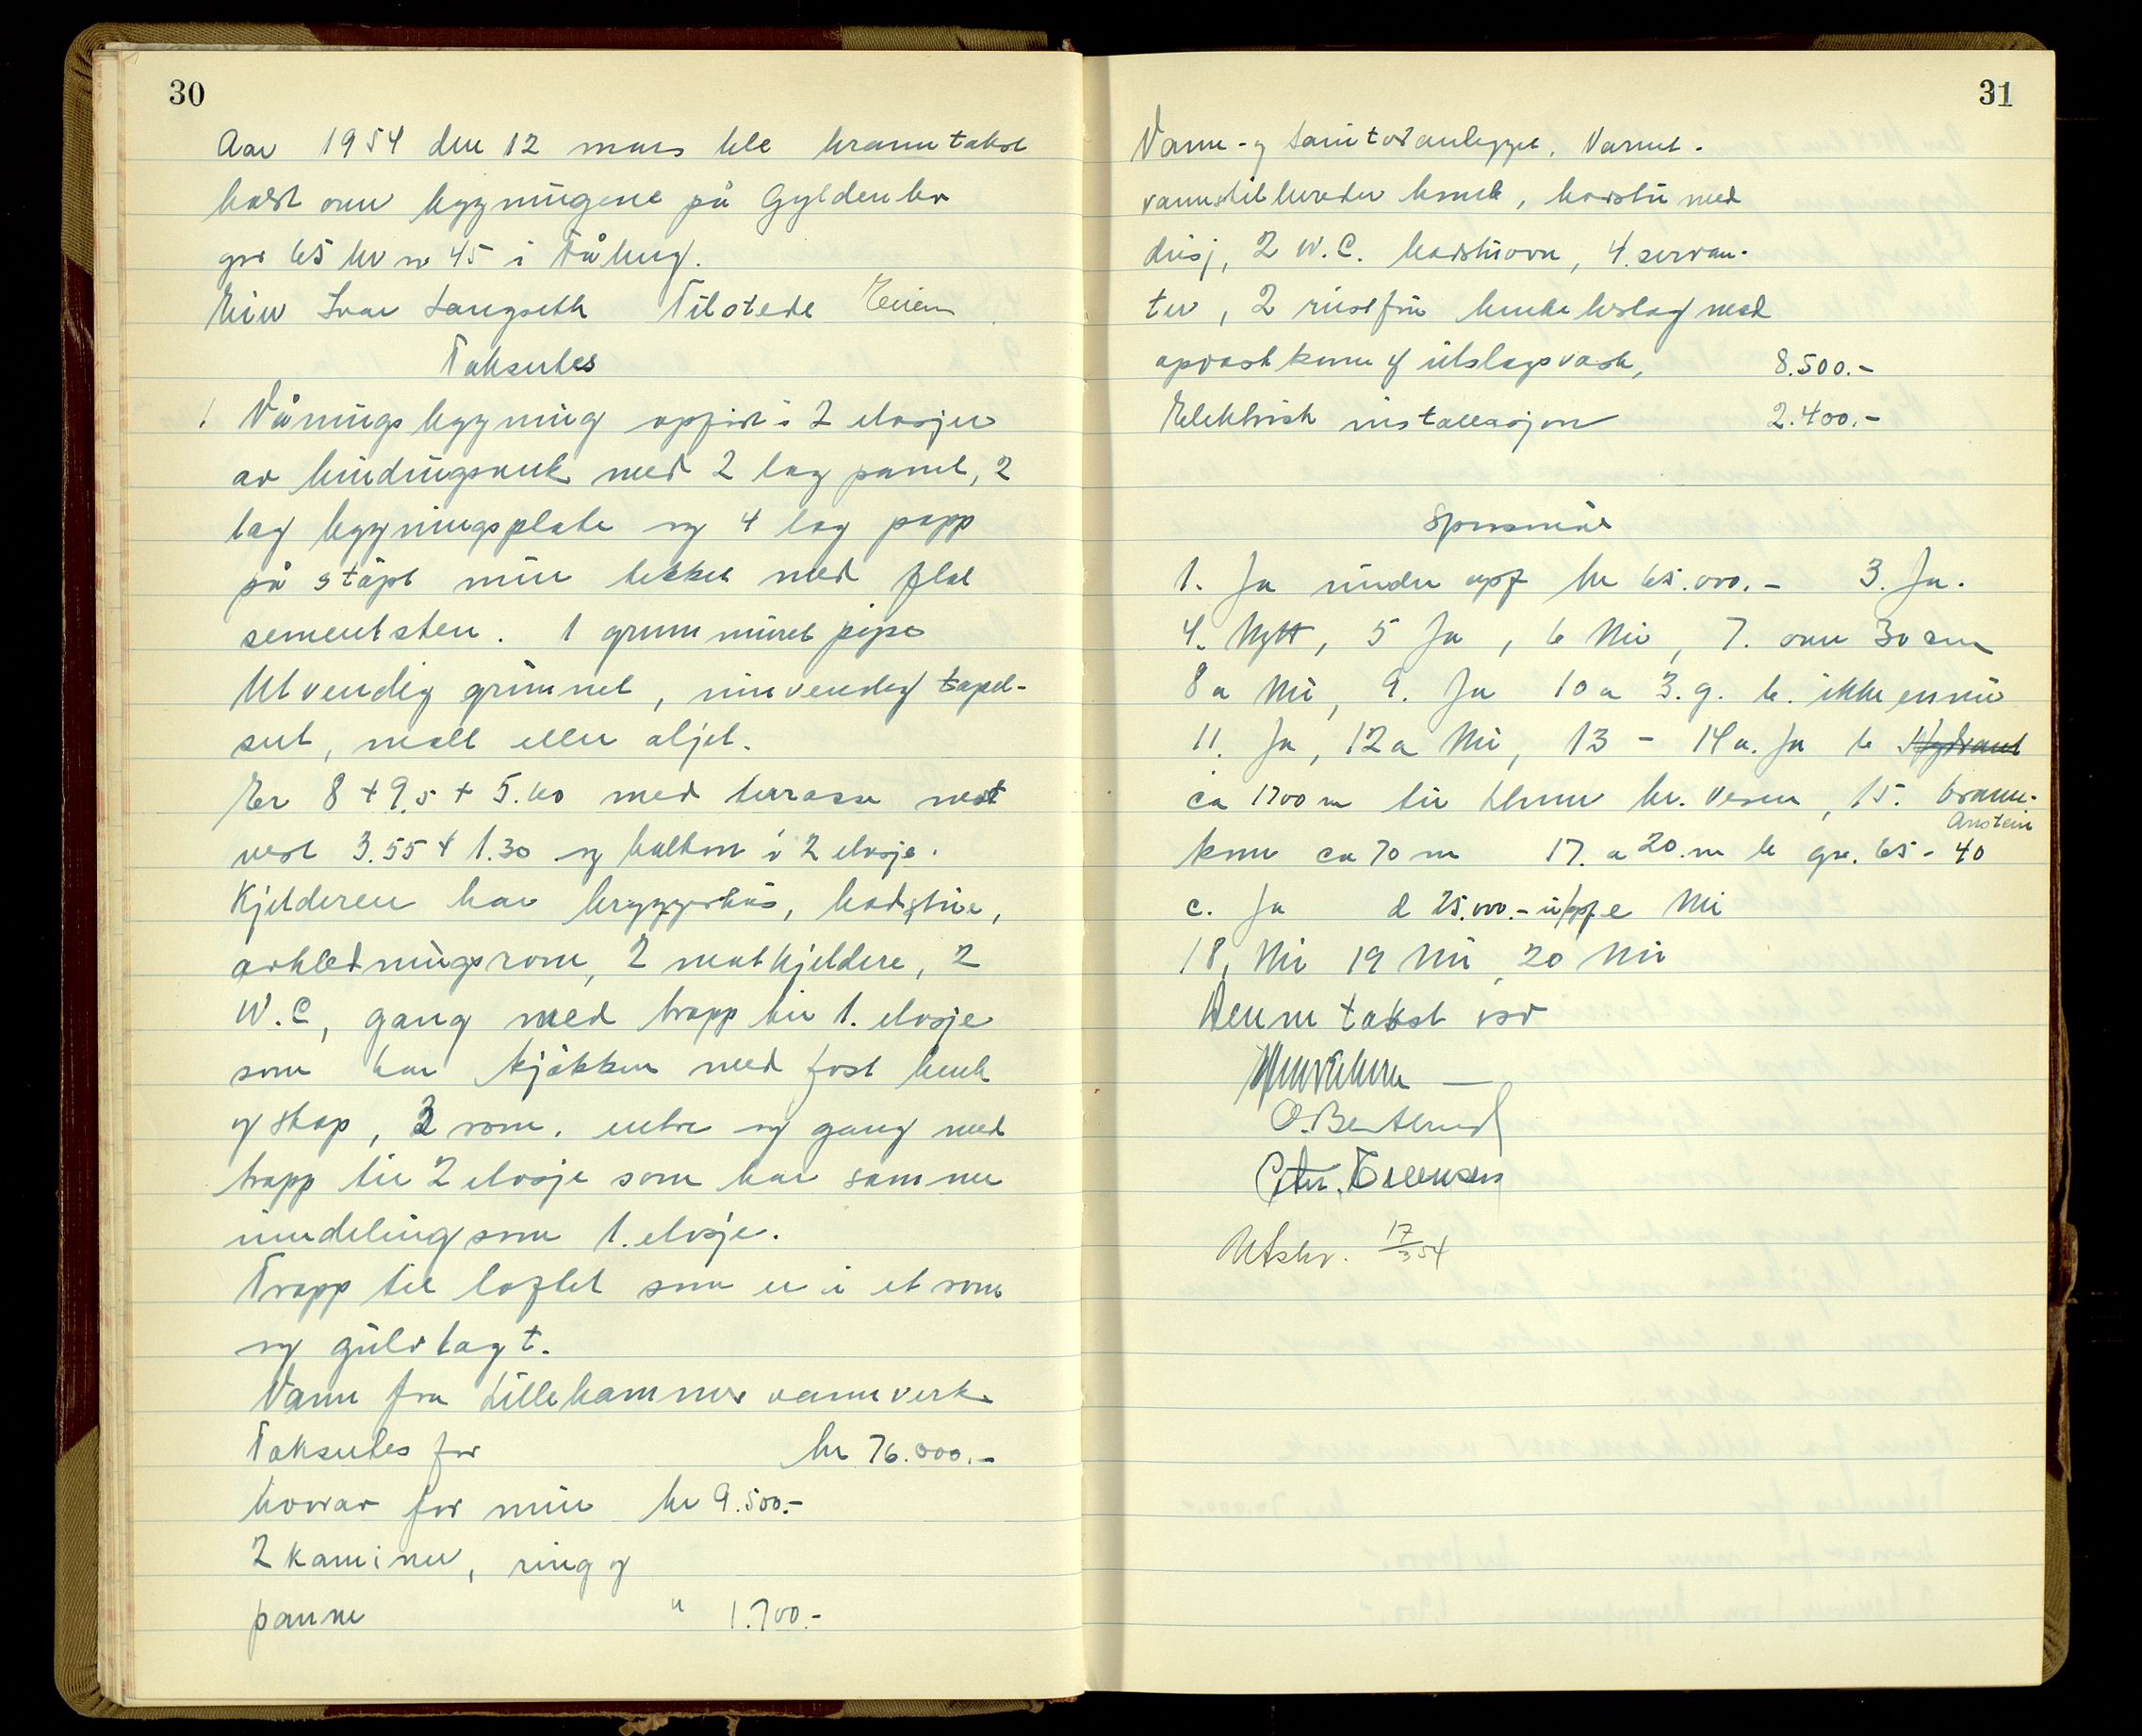 30
Aar 1954 den 12 mars ble branntakst
holdt over bygningene på Gyldenbo
gnr 65 br nr 45 i Fåberg.
Eier Ivar Langseth Tilstede Eieren
Takseres
1 Våningsbygning oppført i 2 etasjer
av bindingsverk med 2 lag panel, 2
lag bygningsplate og 4 lag papp
på støpt mur tekket med flat
sementsten. 1 grunnmuret pipe
Utvendig grunnet, innvendig tapet-
sert, malt eller oljet.
Er 8 + 9.5 + 5.60 med terrasse mot
vest 3.55 + 1.30 og balkon i 2 etasje.
Kjelderen har bryggerhus, badstue,
avkledningsrom, 2 matkjeldere, 2
W.C, gang med trapp til 1. etasje
som har kjøkken med fast benk
og skap, 3 rom, entre og gang med
trapp til 2 etasje som har samme
inndeling som 1. etasje.
Trapp til loftet som er i et rom
og gulvlagt.
Vann fra Lillehammer vannverk
Takseres for kr 76.000.-
hvorav for mur kr 9.500.-
2 kaminer, ring og
panne " 1.700.-
31
Vann- og sanitæranlegget, Varmt-
vannstilbereder , badstu med
dusj, 2 W.C. badstuovn, 4. servan-
ter, 2 rustfrie benkebeslag med
oppvaskkum og utslagsvask, 8.500.-
Elektrisk installasjon 2.400.-
Spørsmål
1. Ja under oppf kr 65.000.- 3. Ja.
4. Nytt, 5 Ja, 6 Nei, 7. over 30 cm
8a Nei, 9. Ja 10a 3.g. b. ikke ennu
11. Ja, 12a Nei, 13 - 14a. Ja b Hydrant
ca 1700 m til Lhmr br. vesen, 15. brann-
Anstein
kum ca 70 m 17. a 20.m b gnr. 65 - 40
c. Ja d 25.000.- u/oppf e Nei
18, Nei 19 Nei, 20 Nei
Denne takst
O.
Utskr. 17/3 54